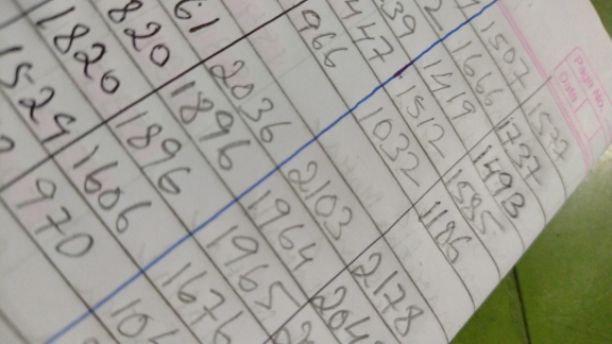 Page No
Date
1507 1577
1666 1737
39 1419 1493
1447 1512 1585
966 1032 1186
61 2036 2103 2178
820 1896 1964 204
1820 1896 1965
1529 1606 1676
970 104